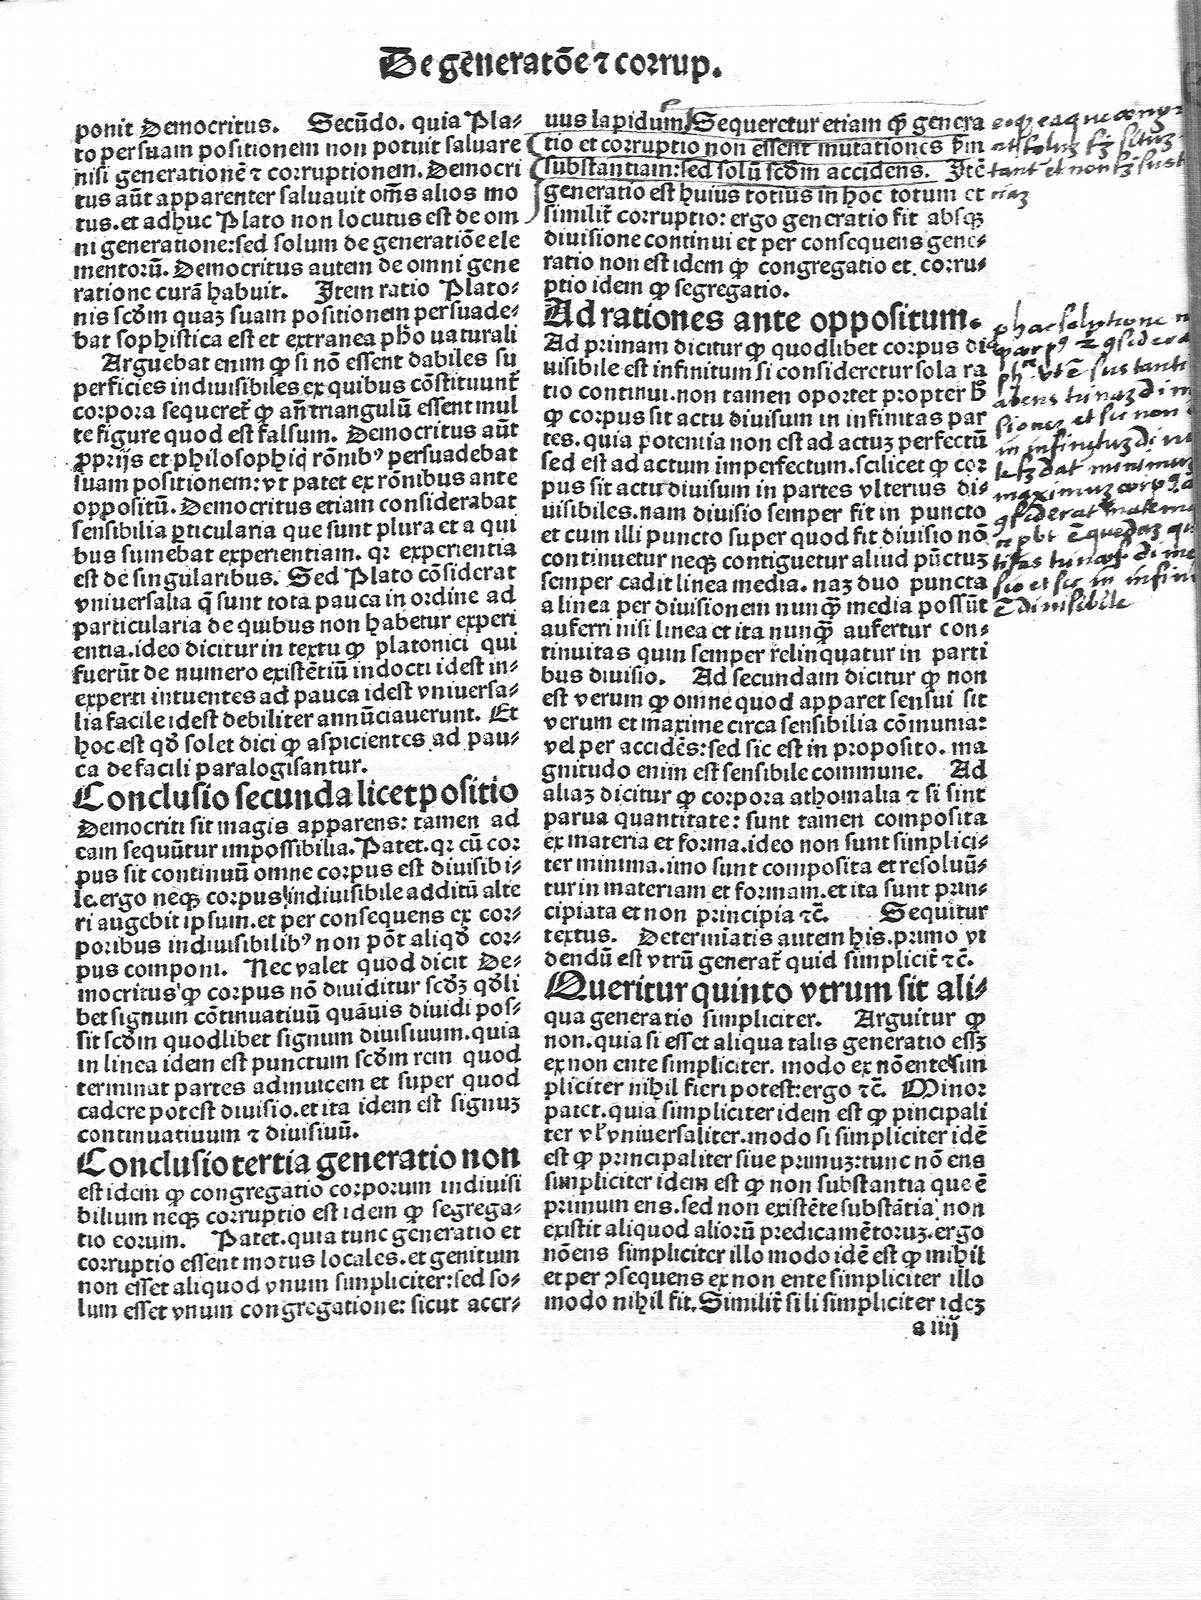 De generatōe ⁊ corrup.
ponit Democritus. Secūdo. quia Pla⸗
to per suam positionem non potuit saluare
nisi generationē ⁊ corruptionem. Democri
tus aūt apparenter saluauit om̄s alios mo
tus. et adhuc Plato non locutus est de om
ni generatione: sed solum de generatiōe ele
mentorū. Democritus autem de omni gene
ratione curā habuit. Item ratio Plato⸗
nis scd̄m quaꝫ suam positionem persuade⸗
bat sophistica est et extranea pho naturali
Arguebat enim ꝙ si nō essent dabiles su
perficies indiuisibiles ex quibus cōstituunt̄
corpora sequeret̄ ꝙ an̄ triangulū essent mul
te figure quod est falsum. Democritus aūt
ꝓprijs et philosophiq̄ rōnibꝰ persuadebat
suam positionem: vt patet ex rōnibus ante
oppositū. Democritus etiam considerabat
sensibilia ꝑticularia que sunt plura et a qui
bus sumebat experientiam. qꝛ experientia
est de singularibus. Sed Plato cōsiderat
vniuersalia q̄ sunt tota pauca in ordine ad
particularia de quibus non habetur experi
entia. ideo dicitur in textu ꝙ platonici qui
fuerūt de numero existētiū indocti idest in⸗
experti intuentes ad pauca idest vniuersa⸗
lia facile idest debiliter annūciauerunt. Et
hoc est qd̄ solet dici ꝙ aspicientes ad pau⸗
ca de facili paralogisantur.
Conclusio secunda licet positio
Democriti sit magis apparens: tamen ad
eam sequūtur impossibilia. Patet. qꝛ cū cor
pus sit continuū omne corpus est diuisibi⸗
le. ergo neqꝫ corpus indiuisibile additū alte
ri augebit ipsum. et per consequens ex cor⸗
poribus indiuisibilibꝰ non pōt aliqd̄ cor⸗
pus componi. Nec valet quod dicit De⸗
mocritus ꝙ corpus nō diuiditur scd̄ꝫ qd̄li
bet signum cōtinuatiuū quāuis diuidi pos⸗
sit scd̄m quodlibet signum diuisiuum. quia
in linea idem est punctum scd̄m rem quod
terminat partes adinuicem et super quod
cadere potest diuisio. et ita idem est signuꝫ
continuatiuum ⁊ diuisiuū.
Conclusio tertia generatio non
est idem ꝙ congregatio corporum indiuisi
bilium neqꝫ corruptio est idem ꝙ segrega⸗
tio eorum. Patet. quia tunc generatio et
corruptio essent motus locales. et genitum
non esset aliquod vnum simpliciter: sed so⸗
lum esset vnum congregatione: sicut acer⸗
uus lapidum Sequeretur etiam ꝙ genera
tio et corruptio non essent mutationes ꝑm
substantiam: sed solū scd̄m accidens. Itē
generatio est huius totius in hoc totum et
similit̄ corruptio: ergo generatio fit absqꝫ
diuisione continui et per consequens gene⸗
ratio non est idem ꝙ congregatio et corru⸗
ptio idem ꝙ segregatio.
Ad rationes ante oppositum.
Ad primam dicitur ꝙ quodlibet corpus di
uisibile est infinitum si consideretur sola ra
tio continui. non tamen oportet propter h̄
ꝙ corpus sit actu diuisum in infinitas par
tes. quia potentia non est ad actuꝫ perfectū
sed est ad actum imperfectum. scilicet ꝙ cor
pus sit actu diuisum in partes vlterius di⸗
uisibiles. nam diuisio semper fit in puncto
et cum illi puncto super quod fit diuisio nō
continuetur neqꝫ contiguetur aliud pūctuꝫ
semper cadit linea media. naꝫ duo puncta
a linea per diuisionem nunꝙ̄ media possūt
auferri nisi linea et ita nunꝙ̄ aufertur con⸗
tinuitas quin semper relinquatur in parti
bus diuisio. Ad secundam dicitur ꝙ non
est verum ꝙ omne quod apparet sensui sit
verum et maxime circa sensibilia cōmunia:
vel per accidēs: sed sic est in proposito. ma
gnitudo enim est sensibile commune. Ad
aliaꝫ dicitur ꝙ corpora athomalia ⁊ si sint
parua quantitate: sunt tamen composita
ex materia et forma. ideo non sunt simplici⸗
ter minima. imo sunt composita et resoluū⸗
tur in materiam et formam. et ita sunt prin⸗
cipiata et non principia ⁊c̄. Sequitur
textus. Determīatis autem his. primo vi
dendū est vtrū generat̄ quid simplicit̄ ⁊c̄.
Queritur quinto vtrum sit ali⸗
qua generatio simpliciter. Arguitur ꝙ
non. quia si esset aliqua talis generatio essꝫ
ex non ente simpliciter. modo ex nō ente sim
pliciter nihil fieri potest: ergo ⁊c̄. Minor
patet. quia simpliciter idem est ꝙ pincipali
ter vl̓ vniuersaliter. modo si simpliciter idē
est ꝙ principaliter siue primuꝫ: tunc nō ens
simpliciter idem est ꝙ non substantia que ē
primum ens. sed non existēte substātia non
existit aliquod aliorū predicamētoruꝫ. ergo
nōens simpliciter illo modo idē est ꝙ nihil
et per ꝯsequens ex non ente simpliciter illo
modo nihil fit. Similit̄ si li simpliciter ideꝫ
a iiij